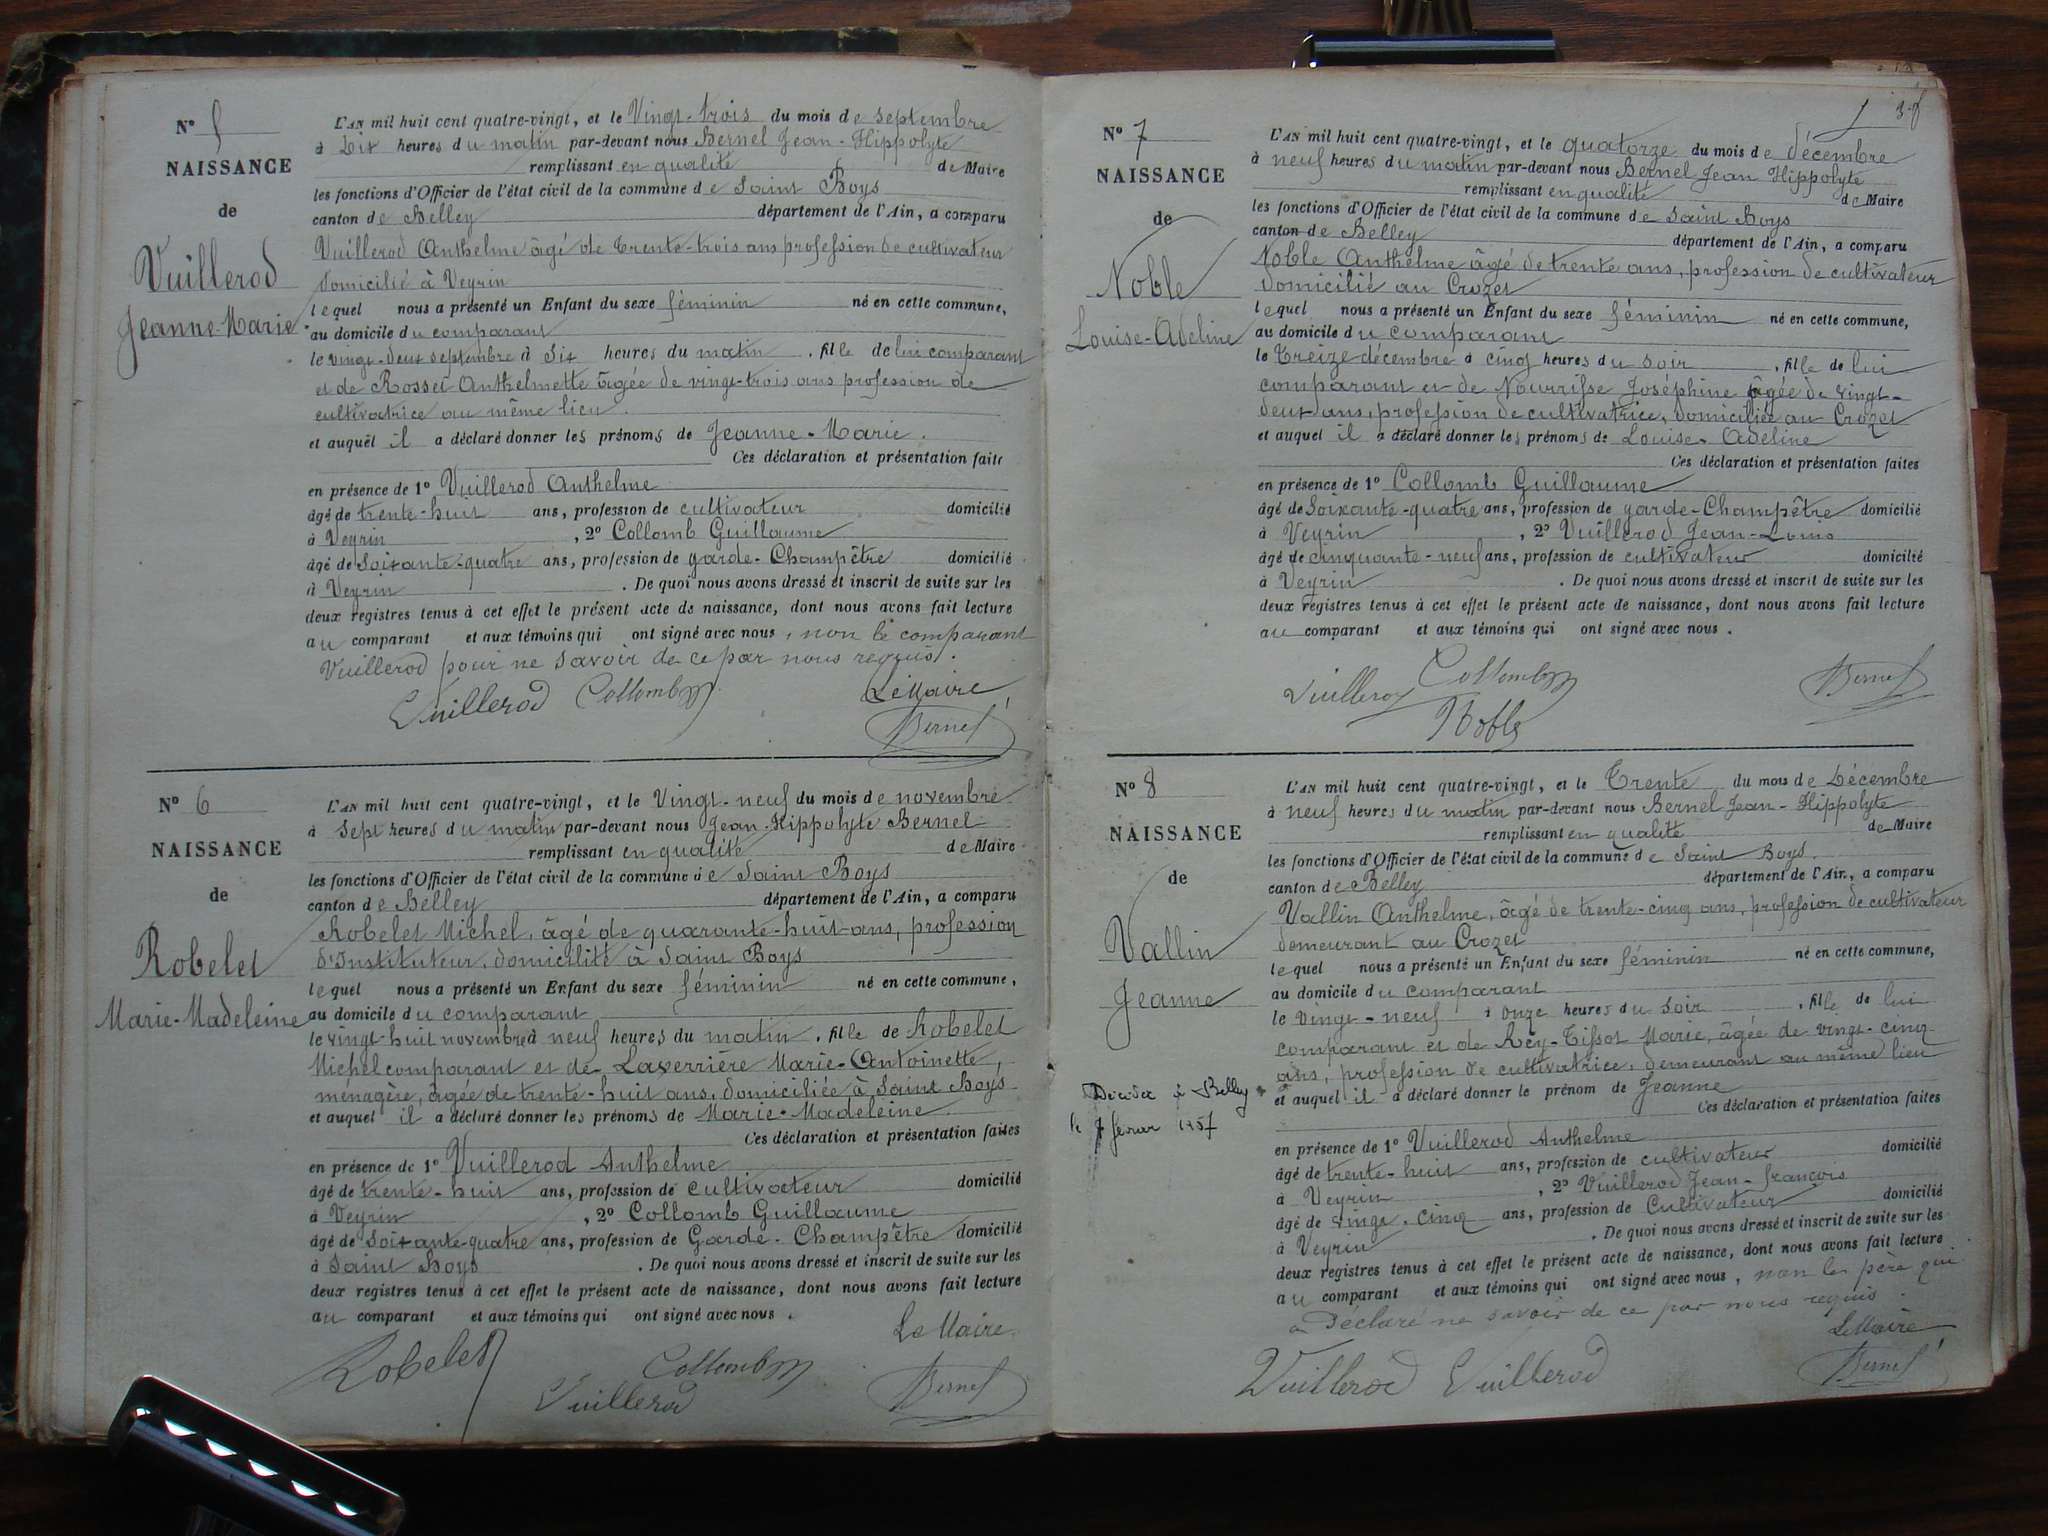 N° 5
NAISSANCE
de
Vuillerod
Jeanne-Marie
L'AN mil huit cent quatre-vingt, et le Vingt-trois du mois de septembre
à Dix heures du matin par-devant nous Bernel Jean-Hippolyte
remplissant en qualité de Maire
les fonctions d'Officier de l'état civil de la commune de Saint Boys
canton de Belley département de l'Ain, a comparu
Vuillerod Anthelme âgé de trente-trois ans profession de cultivateur
domicilié à Veyrin
lequel nous a présenté un Enfant du sexe féminin né en cette commune,
au domicile du comparant
le vingt-deux septembre à six heures du matin, fille de lui comparant
et de Rosset Anthelmette âgée de vingt-trois ans profession de
cultivatrice au même lieu.
et auquel il a déclaré donner les prénoms de Jeanne-Marie.
Ces déclaration et présentation faite
en présence de 1° Vuillerod Anthelme
âgé de trente-huit ans, profession de cultivateur domicilié
à Veyrin, 2° Collomb Guillaume
âgé de soixante-quatre ans, profession de garde-Champêtre domicilié
à Veyrin. De quoi nous avons dressé et inscrit de suite sur les
deux registres tenus à cet effet le présent acte de naissance, dont nous avons fait lecture
au comparant et aux témoins qui ont signé avec nous, non le comparant
Vuillerod pour ne savoir de ce par nous requis.
Vuillerod Collomb Le Maire
Bernel
N° 6
NAISSANCE
de
Robelet
Marie-Madeleine
L'AN mil huit cent quatre-vingt, et le Vingt-neuf du mois de novembre
à sept heures du matin par-devant nous Jean-Hippolyte Bernel
remplissant en qualité de Maire
les fonctions d'Officier de l'état civil de la commune de Saint Boys
canton de Belley département de l'Ain, a comparu
Robelet Michel, âgé de quarante-huit ans, profession
d'Instituteur, domicilité à Saint Boys
lequel nous a présenté un Enfant du sexe féminin né en cette commune,
au domicile du comparant
le vingt-huit novembre à neuf heures du matin, fille de Robelet
Michel comparant et de Laverrière Marie-Antoinette,
ménagère, âgée de trente-huit ans, domiciliée à Saint Boys
et auquel il a déclaré donner les prénoms de Marie-Madeleine
Ces déclaration et présentation faites
en présence de 1° Vuillerod Anthelme
âgé de trente-huit ans, profession de cultivateur domicilié
à Veyrin, 2° Collomb Guillaume
âgé de soixante-quatre ans, profession de Garde-Champêtre domicilié
à Saint Boys. De quoi nous avons dressé et inscrit de suite sur les
deux registres tenus à cet effet le présent acte de naissance, dont nous avons fait lecture
au comparant et aux témoins qui ont signé avec nous.
Le Maire
Robelet Collomb
Vuillerod Bernel
N° 7
NAISSANCE
de
Noble
Louise-Adeline
L'AN mil huit cent quatre-vingt, et le quatorze du mois de décembre
à neuf heures du matin par-devant nous Bernel Jean Hippolyte
remplissant en qualité de Maire
les fonctions d'Officier de l'état civil de la commune de Saint Boys
canton de Belley département de l'Ain, a comparu
Noble Anthelme âgé de trente ans, profession de cultivateur
domicilié au Crozet
lequel nous a présenté un Enfant du sexe féminin né en cette commune,
au domicile du comparant
le treize décembre à cinq heures du soir, fille de lui
comparant et de Nourrisse Joséphine âgée de vingt-
deux ans, profession de cultivatrice, domiciliée au Crozet
et auquel il a déclaré donner les prénoms de Louise-Adeline
Ces déclaration et présentation faites
en présence de 1° Collomb Guillaume
âgé de soixante-quatre ans, profession de garde-Champêtre domicilié
à Veyrin, 2° Vuillerod Jean-Louis
âgé de cinquante-neuf ans, profession de cultivateur domicilié
à Veyrin. De quoi nous avons dressé et inscrit de suite sur les
deux registres tenus à cet effet le présent acte de naissance, dont nous avons fait lecture
au comparant et aux témoins qui ont signé avec nous.
Vuillerod Collomb Bernel
Noble
N° 8
NAISSANCE
de
Vallin
Jeanne
Décédée à Belley
le 7 février 1957
L'AN mil huit cent quatre-vingt, et le Trente du mois de Décembre
à neuf heures du matin par-devant nous Bernel Jean-Hippolyte
remplissant en qualité de Maire
les fonctions d'Officier de l'état civil de la commune de Saint Boys.
canton de Belley département de l'Ain, a comparu
Vallin Anthelme, âgé de trente-cinq ans, profession de cultivateur
demeurant au Crozet
lequel nous a présenté un Enfant du sexe féminin né en cette commune,
au domicile du comparant
le vingt-neuf à onze heures du soir, fille de lui
comparant et de Rey-Tissot Marie, âgée de vingt-cinq
ans, profession de cultivatrice, demeurant au même lieu
et auquel il a déclaré donner le prénom de Jeanne
Ces déclaration et présentation faites
en présence de 1° Vuillerod Anthelme
âgé de trente-huit ans, profession de cultivateur domicilié
à Veyrin, 2° Vuillerod Jean-françois
âgé de vingt-cinq ans, profession de Cultivateur domicilié
à Veyrin. De quoi nous avons dressé et inscrit de suite sur les
deux registres tenus à cet effet le présent acte de naissance, dont nous avons fait lecture
au comparant et aux témoins qui ont signé avec nous, non le père qui
a Déclaré ne savoir de ce par nous requis.
Le Maire
Vuillerod Vuillerod Bernel